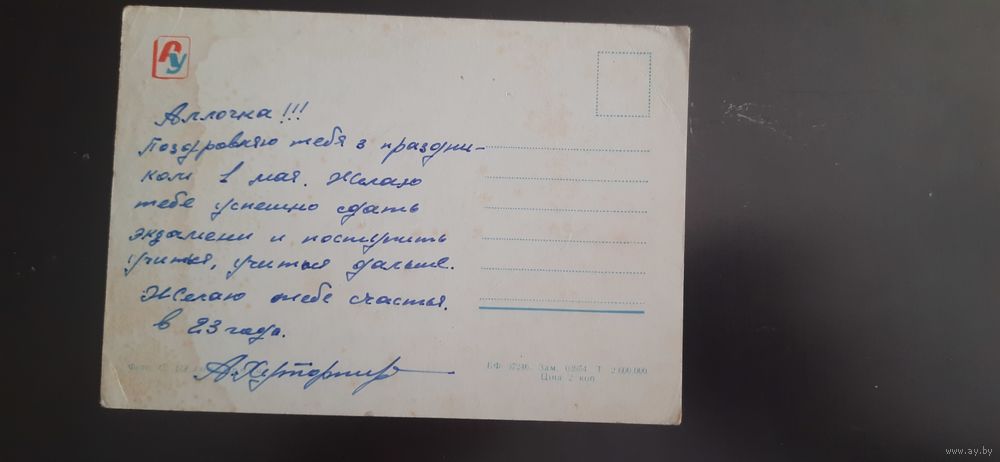 РУ
Аллочка!!!
Поздровляю тебя з праздни-
ком 1 мая. Желаю
тебе успешно сдать
экзамени и поступить
учиться, учиться дальше.
Желаю тебе счастья.
в 23 года.
А. Хуторнир
Фото
БФ 37246. Зам. 02654. Т. 2.600.000
Ціна 2 коп.
www.ay.by